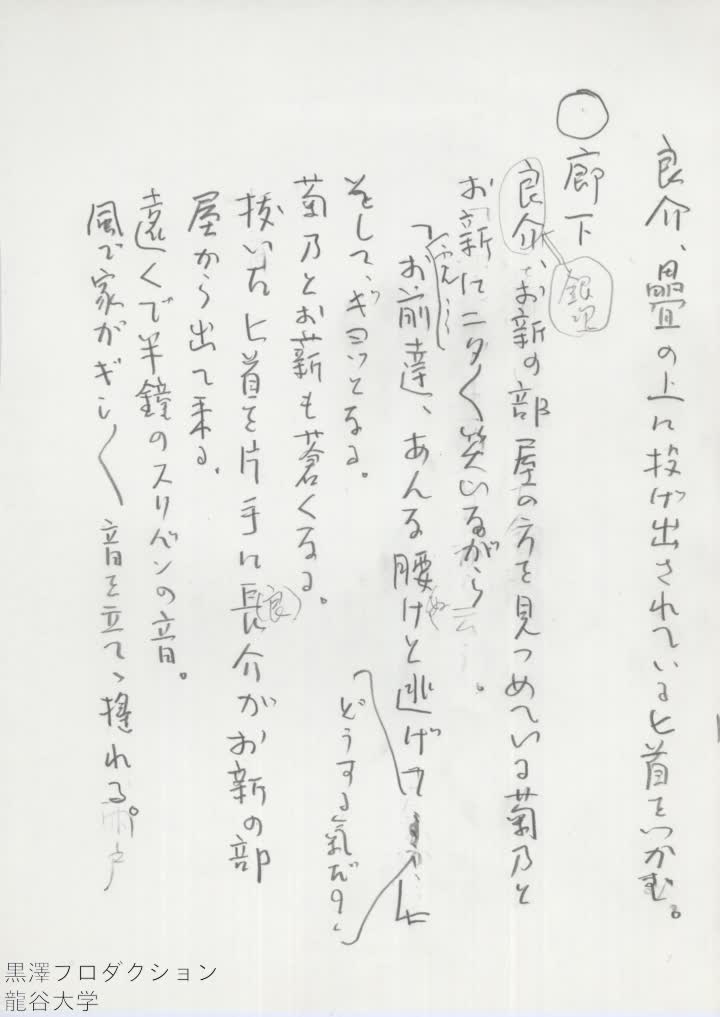 良介、畳の上に投げ出されている匕首をつかむ。
○廊下
銀次
良介、お新の部屋の方を見つめている菊乃と
お新にニタ〱笑いながら云う。
「ふん……
「お前達、あんな腰ぬけと逃げて
どうする氣だ?」
そして、ギヨッとなる。
菊乃とお新も蒼くなる。
抜いた匕首を片手に長(良)介がお新の部
屋から出て来る。
遠くで半鐘のスリバンの音。
風で家がギシ〱音を立てゝ揺れる。
雨戸
黒澤プロダクション
龍谷大学